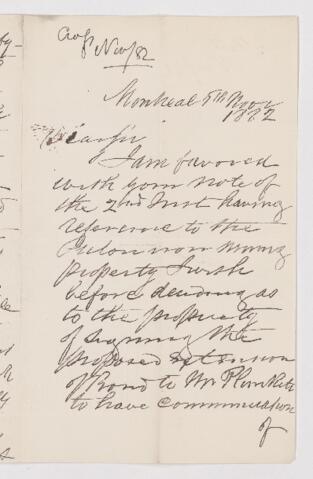 Nov/82
Montreal 9th Nov
1882
Dear Sir
I am favored
with your note of
the 2nd Inst having
reference to the
Iron Mining
property I wish
before deciding as
to the propriety
of signing the
proposed extension
of Bond to Mr Plunkett
to have communication
of